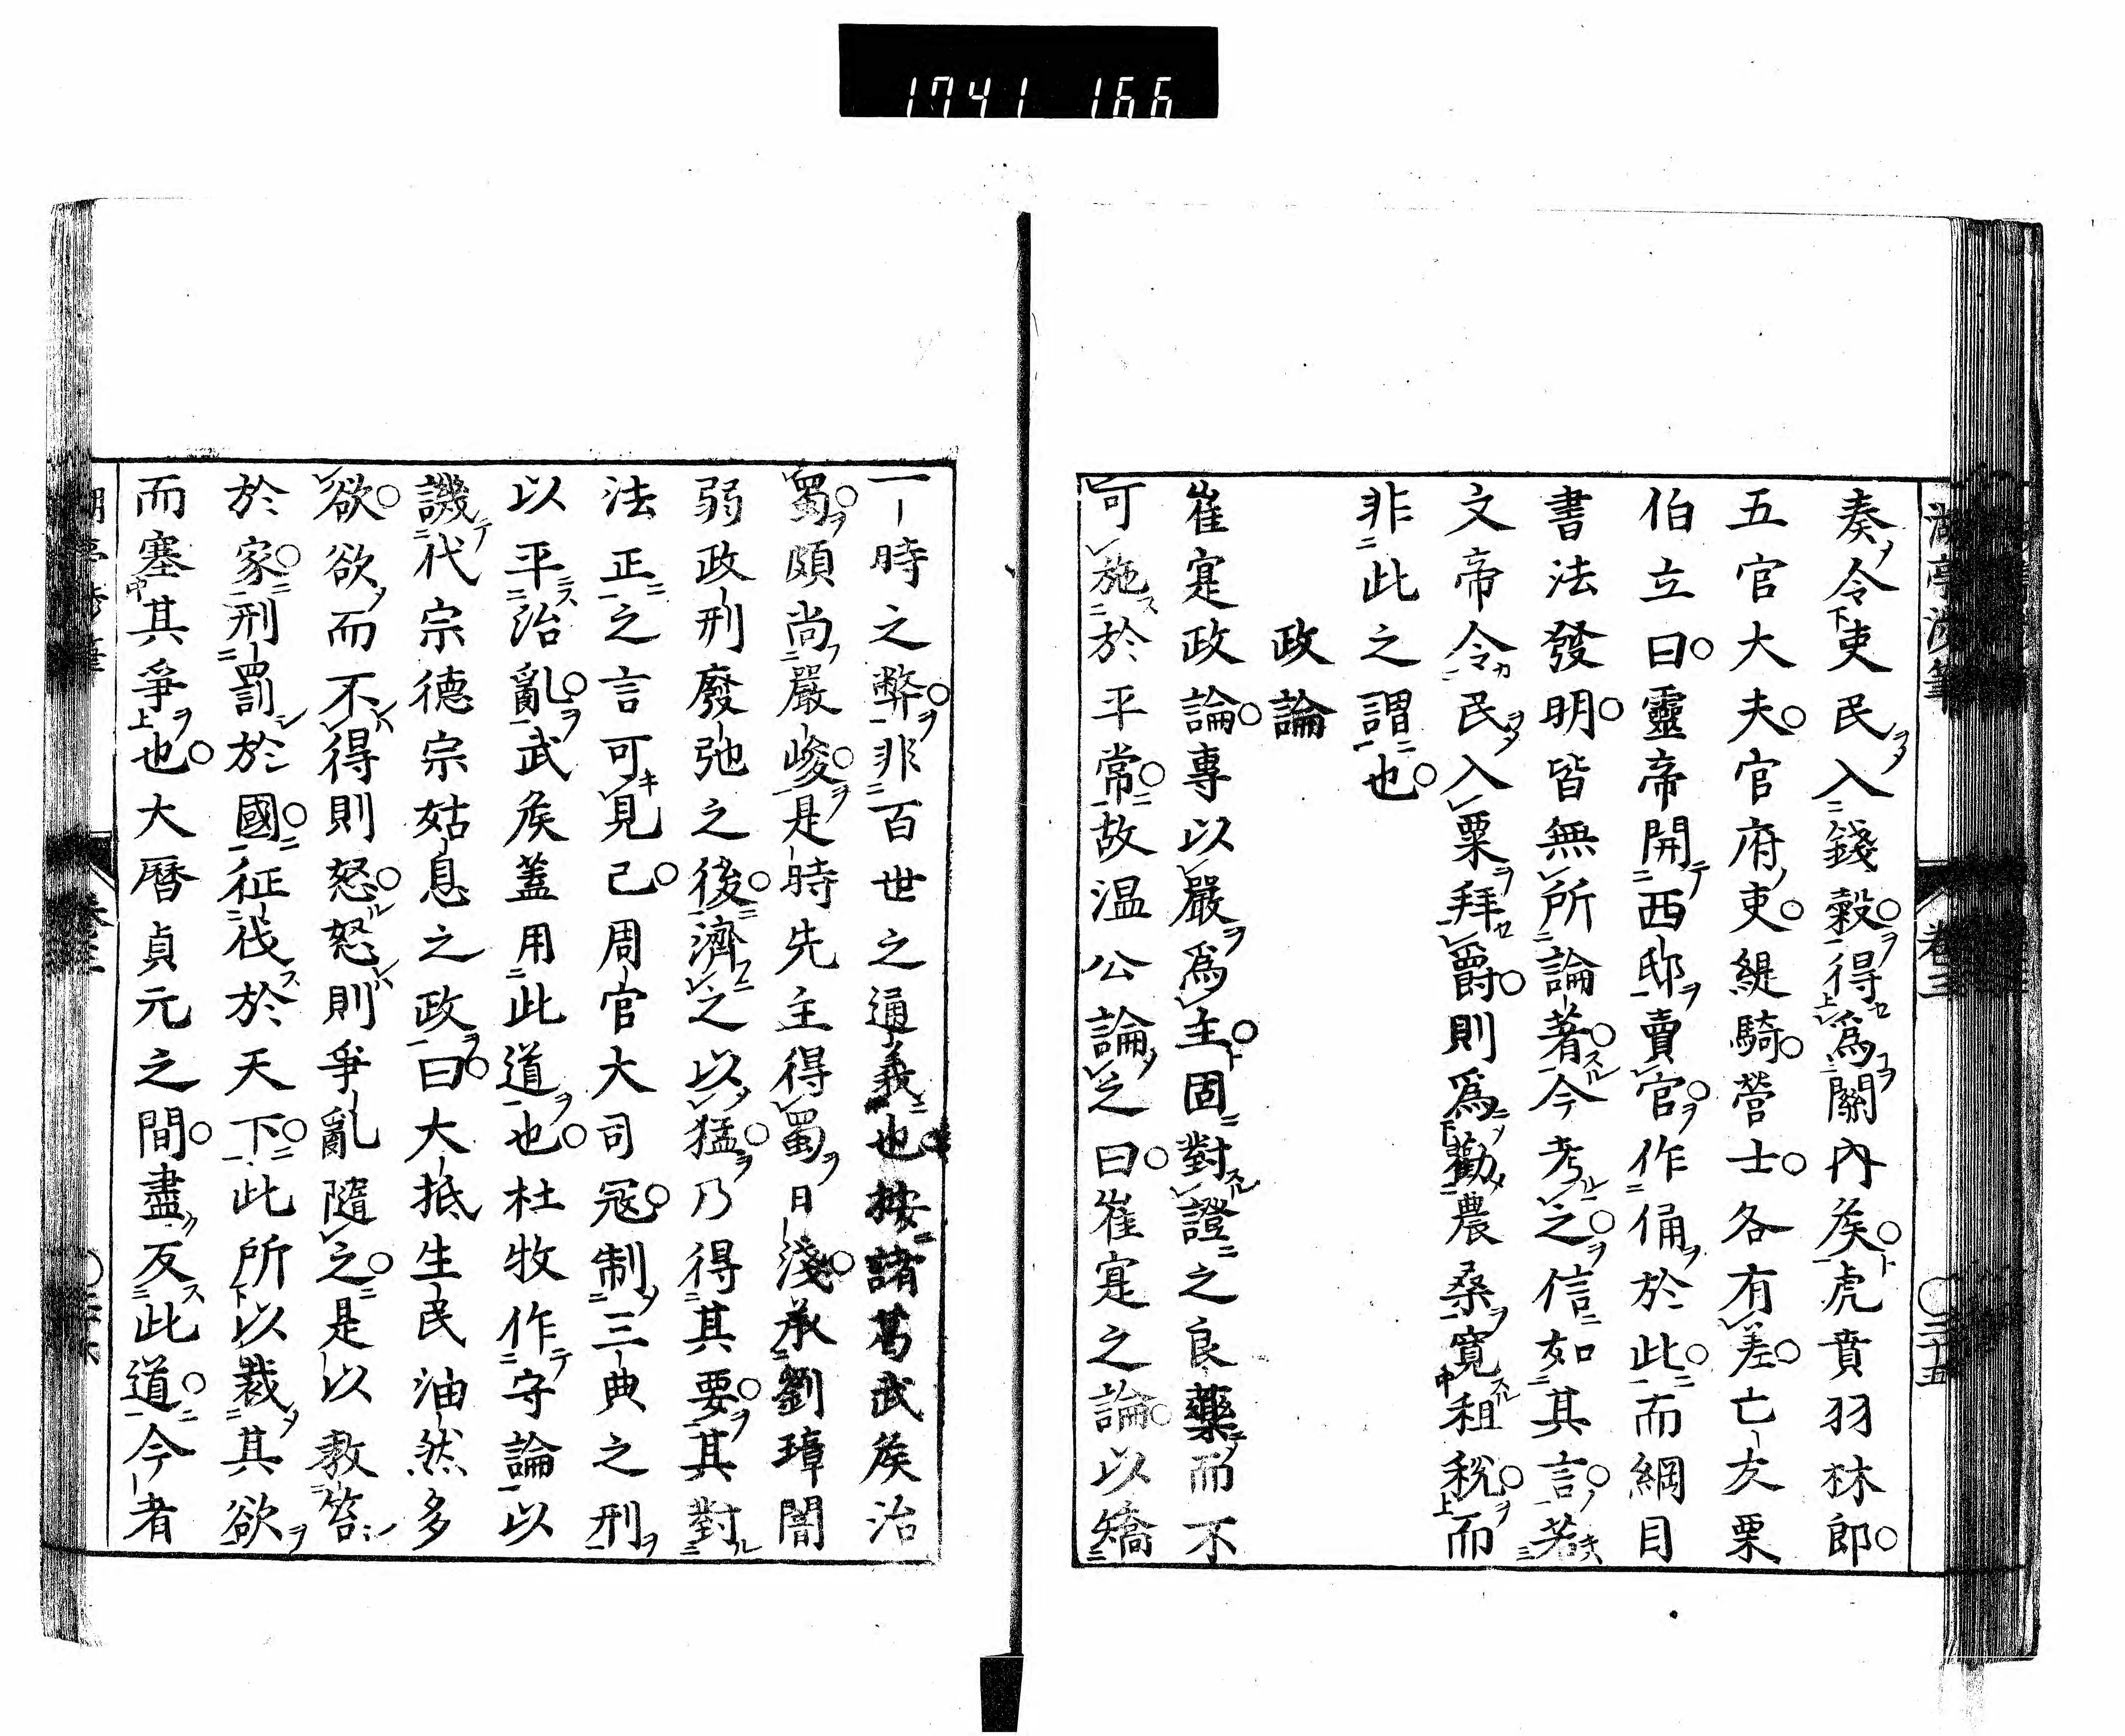 1741 166
奏令吏民入錢穀得爲關內矦虎賁羽林郎
五官大夫官府吏緹騎營士各有差亡友栗
伯立曰靈帝開西邸賣官作俑於此而綱目
書法發明皆無所論著今考之信如其言若
文帝令民入粟拜爵則爲勸農桑寬租稅而
非此之謂也
政論
崔寔政論專以嚴爲主固對證之良藥而不
可施於平常故温公論之曰崔寔之論以矯
一時之弊非百世之通義也按諸葛武矦治
蜀頗尚嚴峻是時先主得蜀日淺承劉璋闇
弱政刑廢弛之後濟之以猛乃得其要其對
法正之言可見已周官大司冦制三典之刑
以平治亂武矦蓋用此道也杜牧作守論以
譏代宗德宗姑息之政曰大抵生民油然多
欲欲而不得則怒怒則爭亂隨之是以教笞
於家刑罰於國征伐於天下此所以裁其欲
而塞其爭也大曆貞元之間盡反此道今者